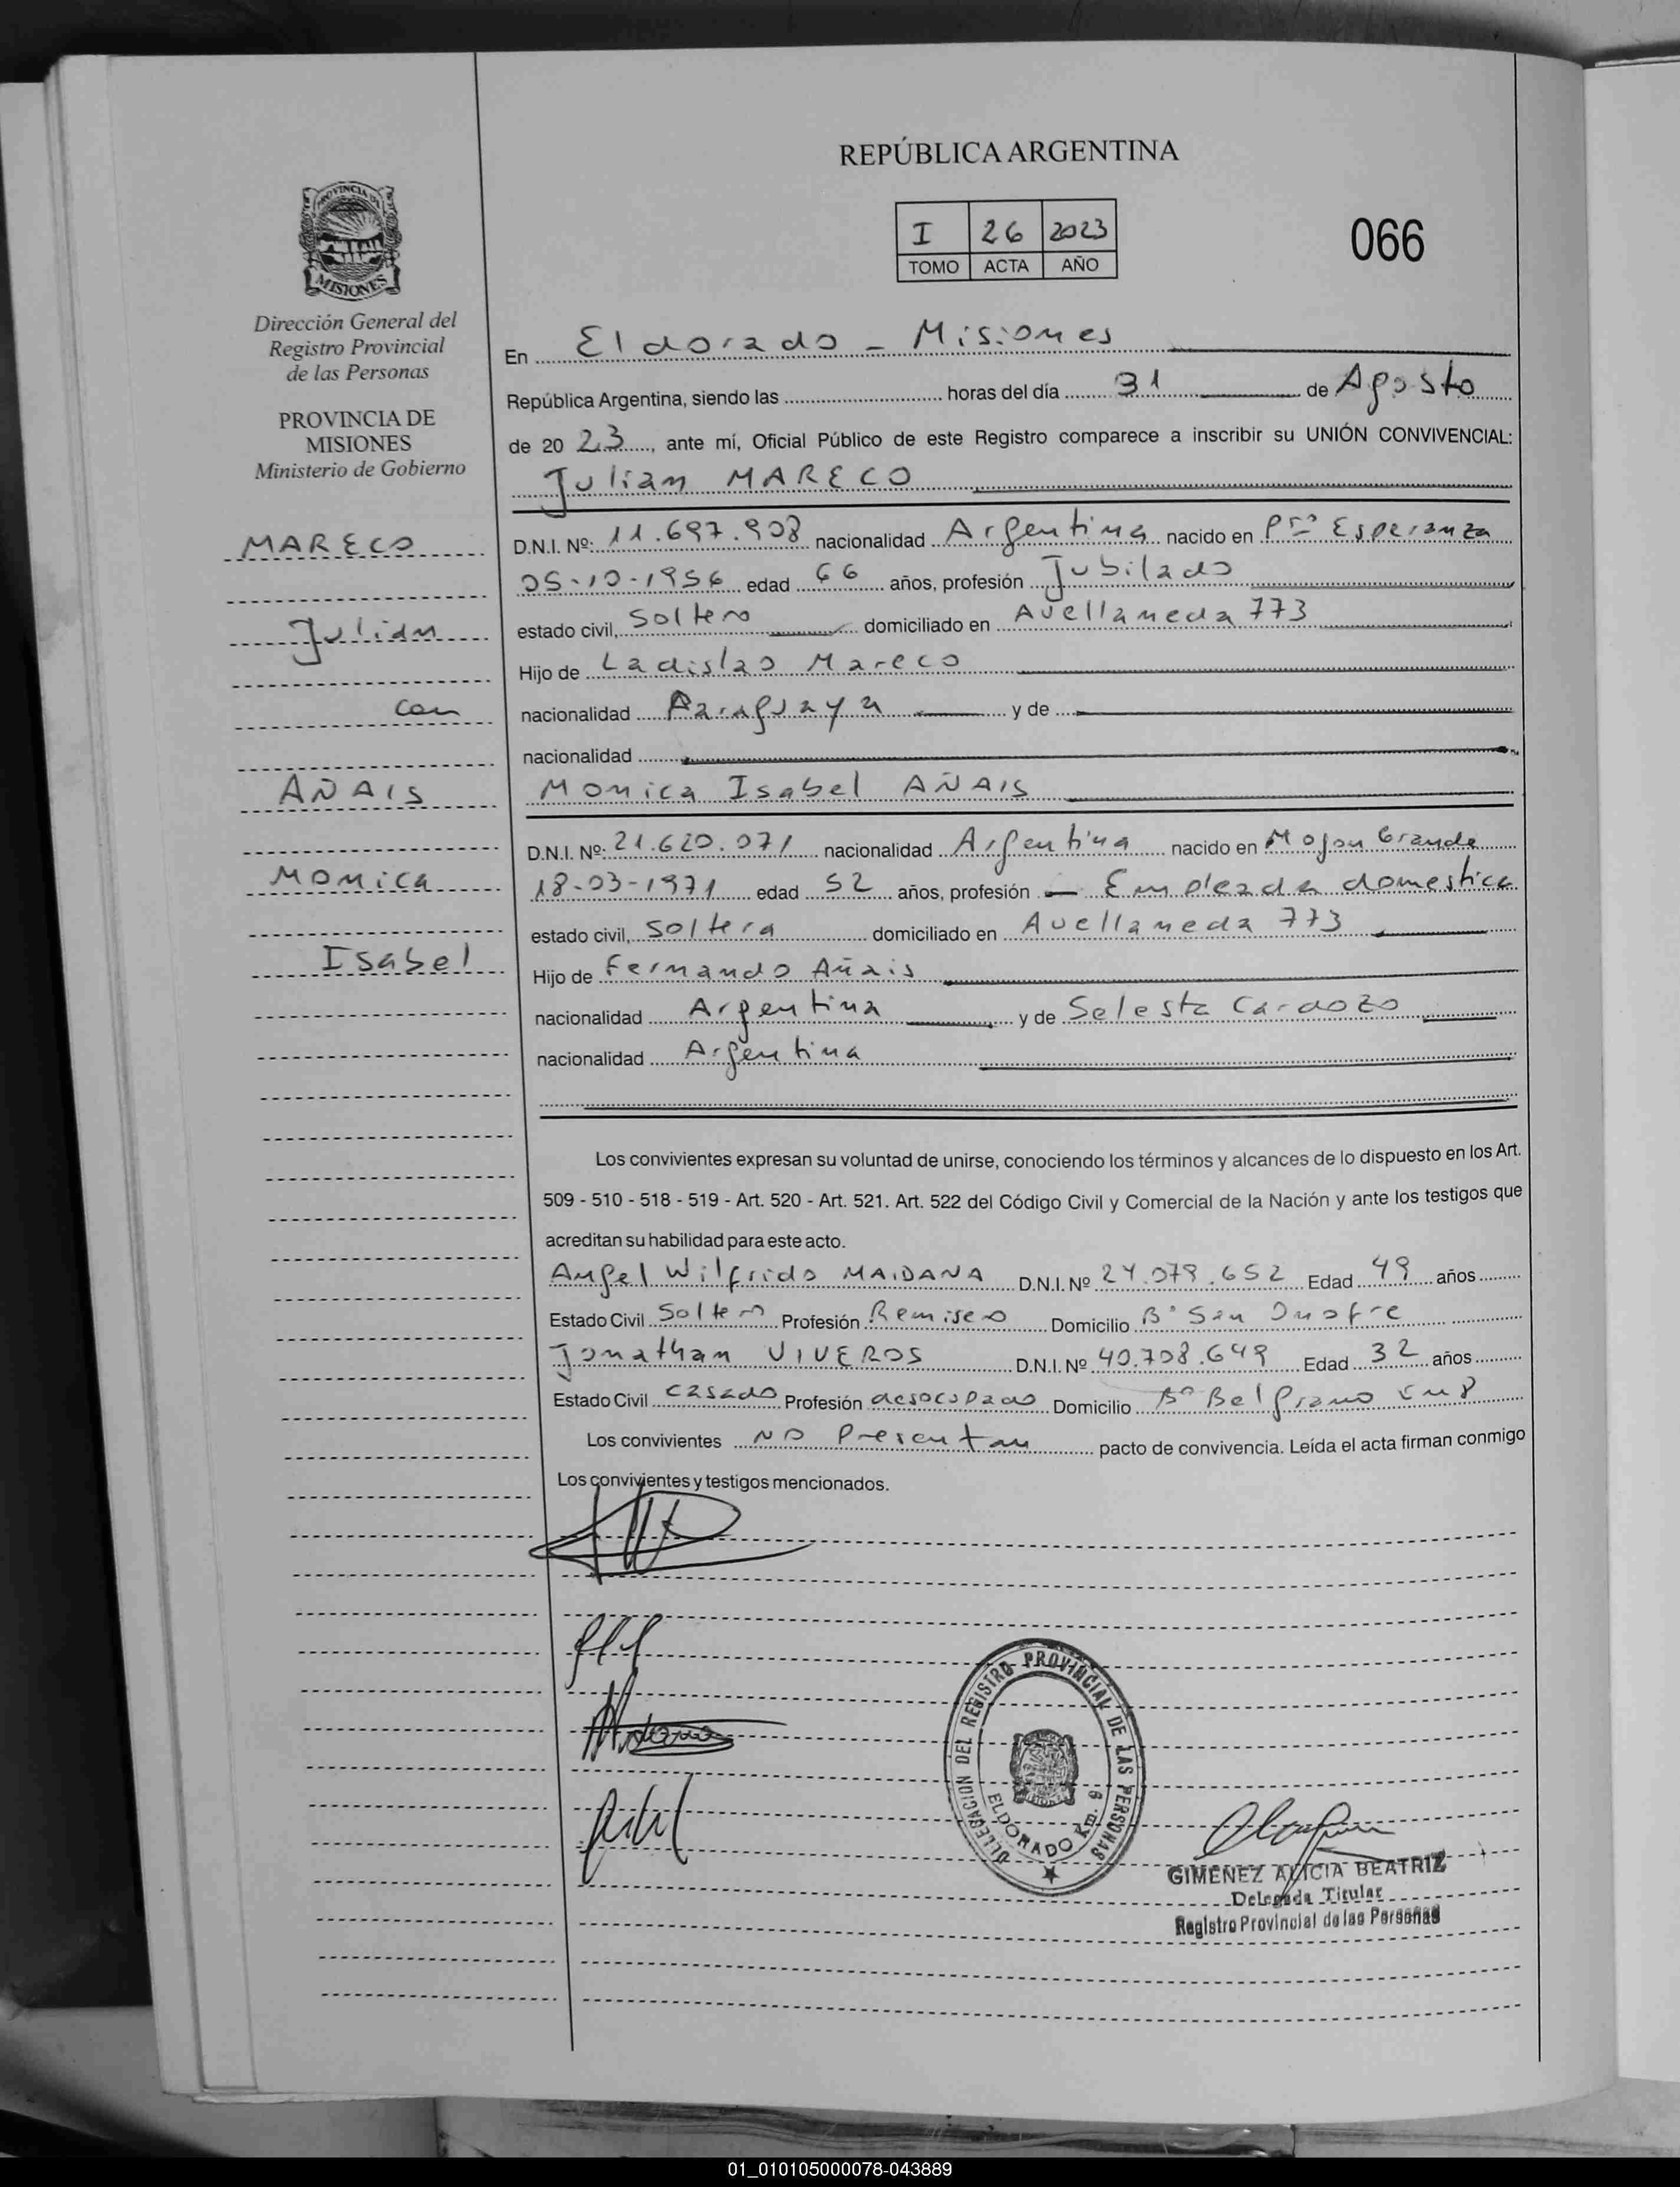 REPÚBLICA ARGENTINA
I 26 2023
TOMO ACTA AÑO
066
PROVINCIA DE
MISIONES
Dirección General del
Registro Provincial
de las Personas
PROVINCIA DE
MISIONES
Ministerio de Gobierno
MARECO
Julian
con
AÑAIS
Monica
Isabel
En Eldorado - Misiones
República Argentina, siendo las horas del día 31 de Agosto
de 20 23, ante mí, Oficial Público de este Registro comparece a inscribir su UNIÓN CONVIVENCIAL:
Julian MARECO
D.N.I. Nº: 11.697.908 nacionalidad Argentina nacido en Pto Esperanza
05-10-1956 edad 66 años, profesión Jubilado
estado civil, Soltero domiciliado en Avellaneda 773
Hijo de Ladislao Mareco
nacionalidad Paraguaya y de
nacionalidad
Monica Isabel AÑAIS
D.N.I. Nº: 21.620.071 nacionalidad Argentina nacido en Mojon Grande
18-03-1971 edad 52 años, profesión - Empleada domestica
estado civil, Soltera domiciliado en Avellaneda 773
Hijo de Fernando Añais
nacionalidad Argentina y de Selesta Cardozo
nacionalidad Argentina
Los convivientes expresan su voluntad de unirse, conociendo los términos y alcances de lo dispuesto en los Art.
509 - 510 - 518 - 519 - Art. 520 - Art. 521. Art. 522 del Código Civil y Comercial de la Nación y ante los testigos que
acreditan su habilidad para este acto.
Angel Wilfrido MAIDANA D.N.I. Nº 24.079.652 Edad 49 años
Estado Civil Soltero Profesión Remisero Domicilio Bº San Onofre
Jonathan VIVEROS D.N.I. Nº 40.708.649 Edad 32 años
Estado Civil casado Profesión desocupado Domicilio Bº Belgrano km 8
Los convivientes NO Presentan pacto de convivencia. Leída el acta firman conmigo
Los convivientes y testigos mencionados.
DELEGACION DEL REGISTRO PROVINCIAL DE LAS PERSONAS
ELDORADO Km. 9
GIMENEZ ALICIA BEATRIZ
Delegada Titular
Registro Provincial de las Personas
01_010105000078-043889